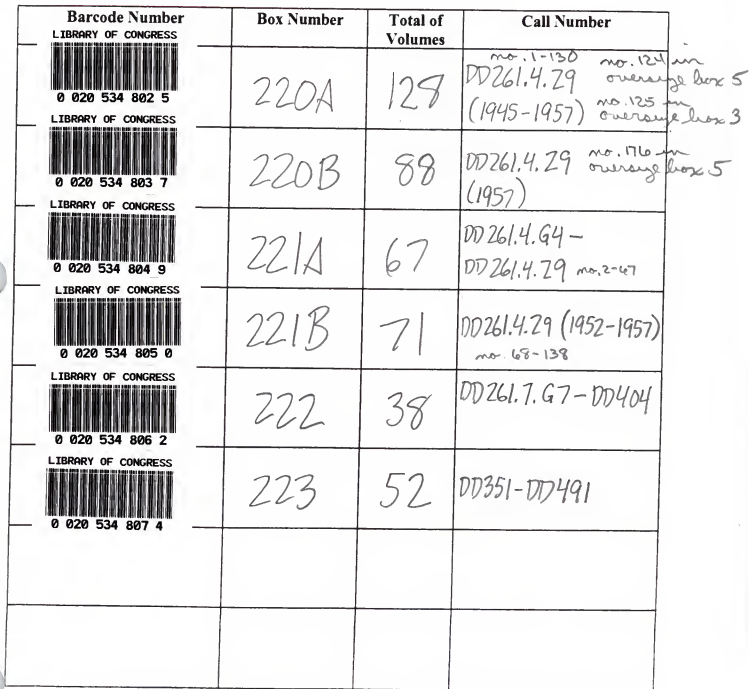 Barcode Number Box Number Total of Volumes Call Number
LIBRARY OF CONGRESS
0 020 534 802 5
220A
128
no. 1-130
DD261.4.Z9
(1945-1957)
no. 124 in
oversize box 5
no. 125 in
oversize box 3
LIBRARY OF CONGRESS
0 020 534 803 7
220B
88
DD261.4.Z9
(1957)
no. 176 in
oversize box 5
LIBRARY OF CONGRESS
0 020 534 804 9
221A
67
DD261.4.G4-
DD261.4.Z9 no. 2-67
LIBRARY OF CONGRESS
0 020 534 805 0
221B
71
DD261.4.Z9 (1952-1957)
no. 68-138
LIBRARY OF CONGRESS
0 020 534 806 2
222
38
DD261.7.G7-DD404
LIBRARY OF CONGRESS
0 020 534 807 4
223
52
DD351-DD491